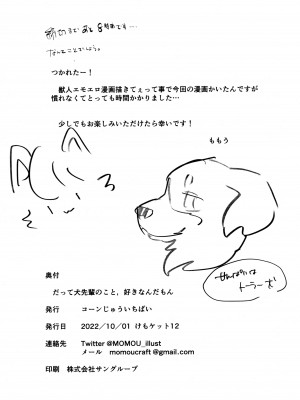 締切まであと8時間です…
なんてことでしょう。
つかれたー！
獣人エモエロ漫画描きてぇって事で今回の漫画かいたんですが
慣れなくてとっても時間かかりました…
少しでもお楽しみいただけたら幸いです！
ももう
せんぱいは
トーラー犬
奥付
だって犬先輩のこと，好きなんだもん
発行　コーンじゅういちばい
発行日　2022／10／01 けもケット12
連絡先　Twitter @MOMOU_illust
メール　momoucraft@gmail.com
印刷　株式会社サングループ